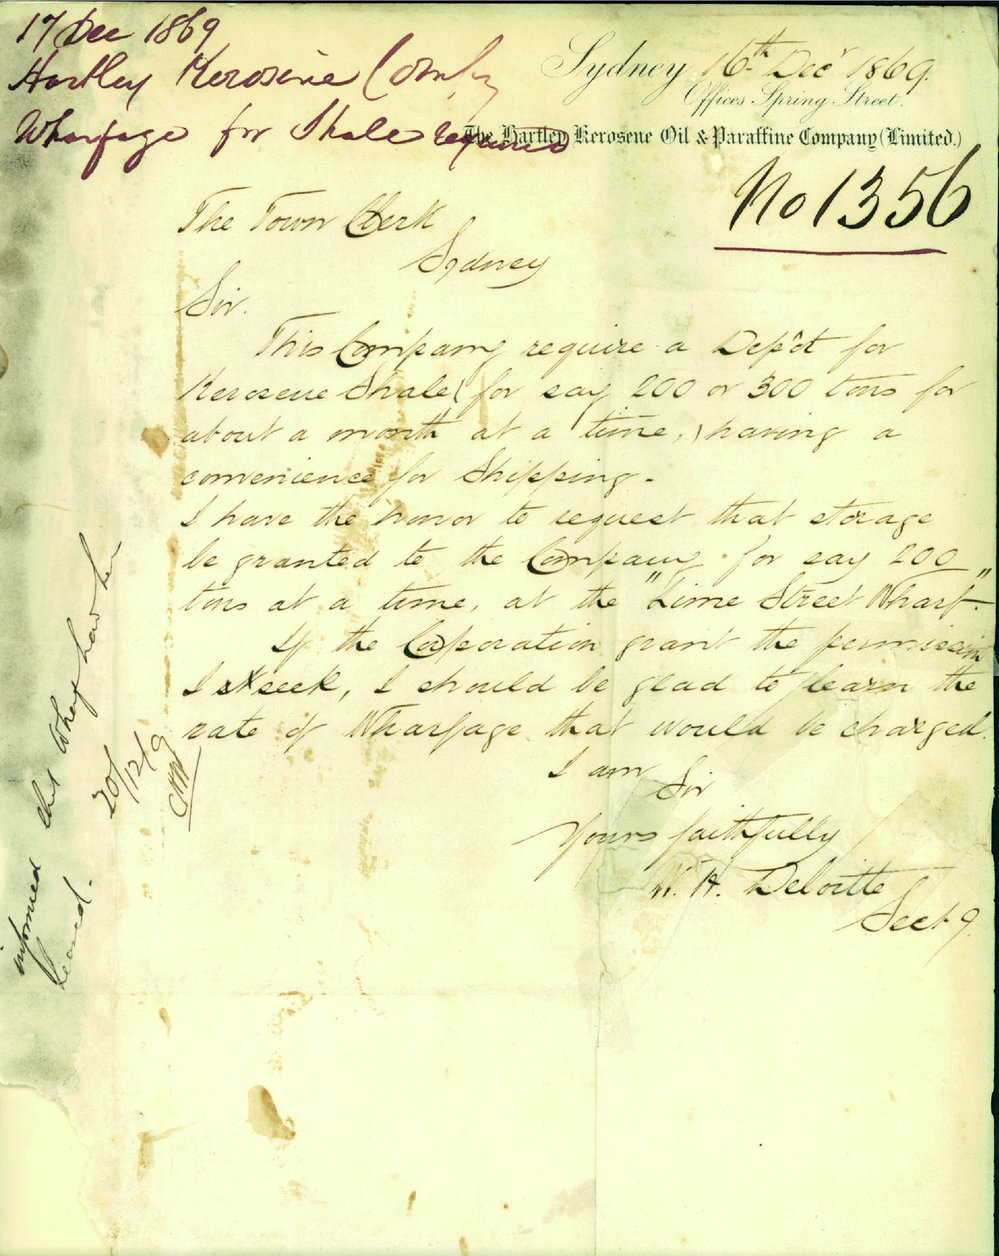 17 Dec 1869
Hartley Kerosine Compy
Wharfage for Shale required
Sydney 16th Decr 1869.
Offices Spring Street.
The Hartley Kerosene Oil & Paraffine Company (Limited.)
No 1356
The Town Clerk
Sydney
Sir.
This Company require a Depôt for
Kerosene Shale (for say 200 or 300 tons for
about a month at a time,) having a
convenience for Shipping.
I have the honor to request that storage
be granted to the Company for say 200
tons at a time, at the "Lime Street Wharf."
If the Corporation grant the permission
I seek, I should be glad to learn the
rate of Wharfage that would be charged.
I am
Sir
Yours faithfully
W. H. Deloitte
Secty.
informed that Wharf has been
leased.
20/12/9